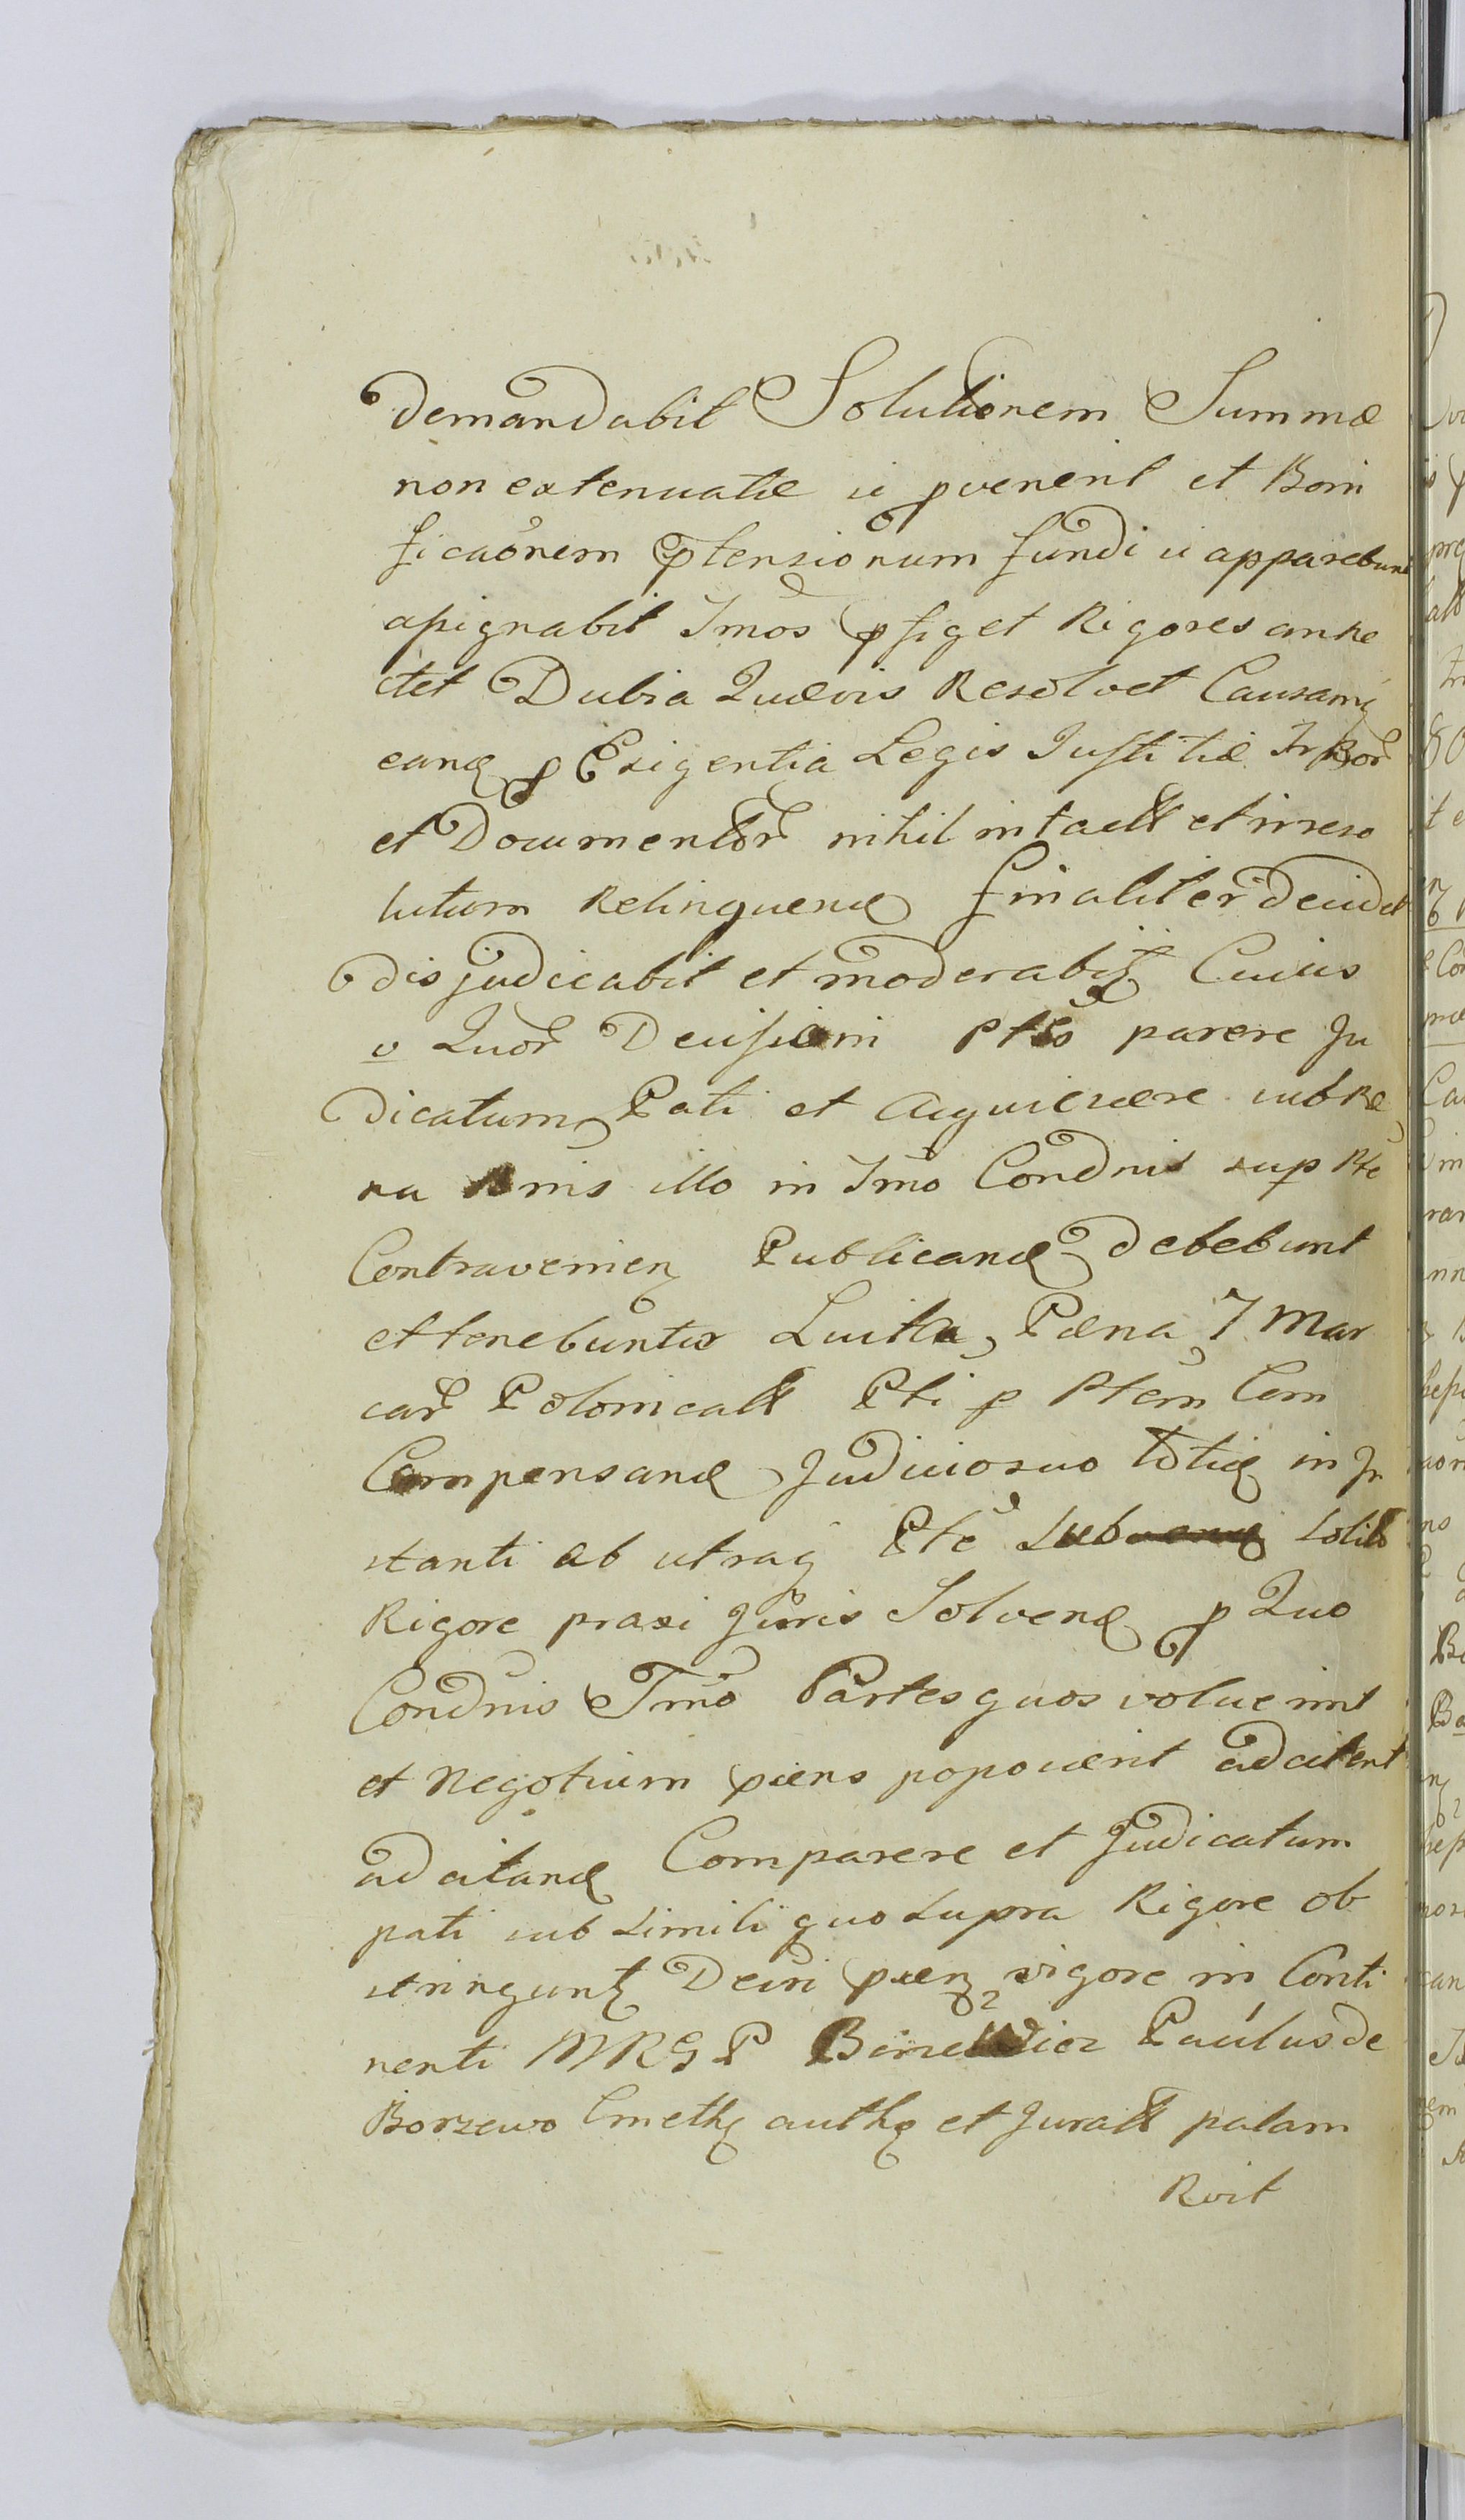 demandabit Solutionem Summæ
non extenuatæ si pvenerit et Boni
ficaõnem ptensionum fundi si apparebunt
assignabit Tm̃os pfiget Rigores anne
ctet Dubia Quævis Resolvet Causamq
eanđ p Exigentia Legis Justitiæ Jr Bor̃
et Documentor̃ nihil intactt et irreso
lutum Relinquenđ finaliter Decidet
disjudicabit et moderabitʒ Cuius
v Quor̃ Decisioni Ptes parere Ju
dicatum Pati et Acquiescere sub Pæ
na illo in Tm̃o Condnis sup Pte
Contravenienʒ Publicanđ debebunt
et tenebuntur Luita Pæna 7 Mar
car̃ Polonicatt Pti p Ptem Com
Compensanđ Judicio suo totieʒ in In
stanti ab utraq Pte sub solito
Rigore praxi Juris Solvenđ p Quo
Condnis Tm̃o Partes quos voluerint
et Negotium pñens poposcerit adcitent
adcitanđ Comparere et Judicatum
pati sub simili quo supra Rigore ob
stringuntʒ Decri pñenʒ vigore in Conti
nenti MRGP Paulus de
Borzewo Cmethʒ authʒ et Juratt palam
Rvit